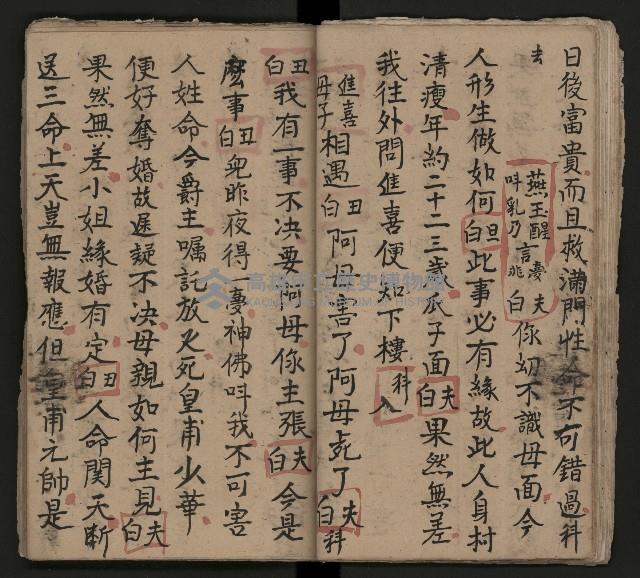 日後富貴而且救滿門性命不可錯過科
去 燕玉醒 言憂 夫白 你幼不識母面今
人形生做如何 旦白 此事必有緣故此人身材
清瘦年約二十二三歲瓜子面 夫白 果然無差
我往外問進喜便知下樓 科 入
進喜母子 相遇 丑白 阿母害了阿母死了 夫白科
丑白 我有一事不決要阿母你主張 夫白 今是
麼事 丑白 兒昨夜得一憂神佛呌我不可害
人姓命今爵主囑託放火死皇甫少華
便好奪婚故遲疑不決母親如何主見 夫白
果然無差小姐緣婚有定 丑白 人命関天斷
送三命上天豈無報應但皇甫元帥是
高雄市立歷史博物館
KAOHSIUNG MUSEUM OF HISTORY